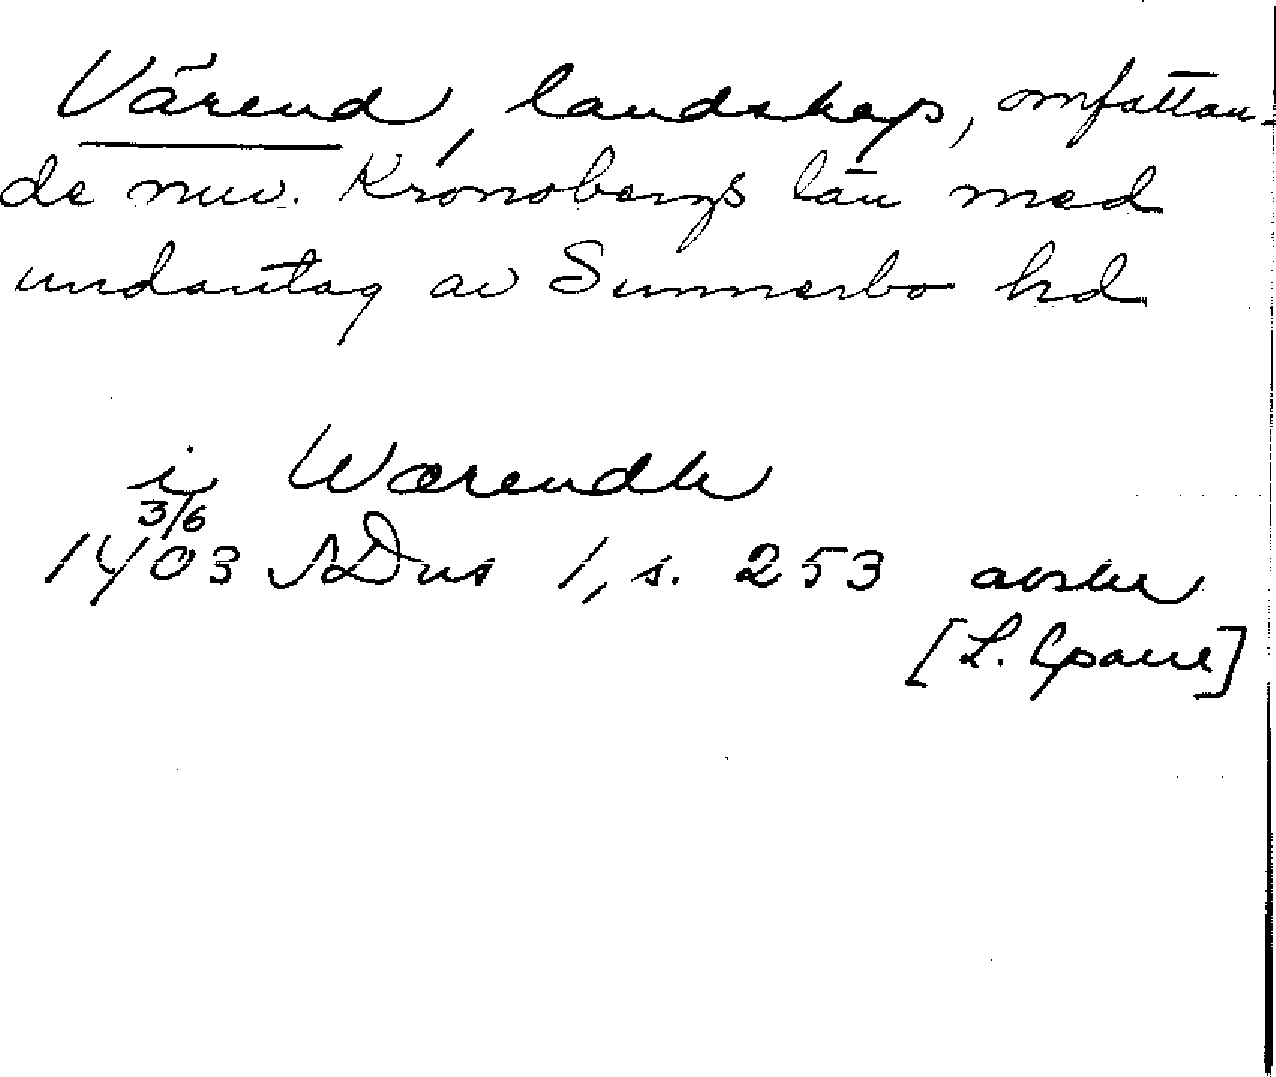 Värend, landskap, omfattan-
de nuv. Kronobergs län med
undantag av Sunnerbo hd
i Wærendh
3/6
1403 SDns 1, s. 253 avskr
[L. Gpane]